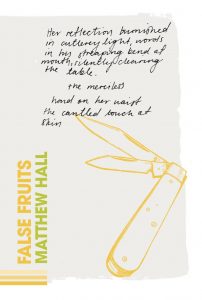 Her reflection burnished
in cutlery light, words
in his strapping bend at
mouth, silently clearing
the table.
the merciless
hand on her waist
the cantled touch at
skin
FALSE FRUITS
MATTHEW HALL